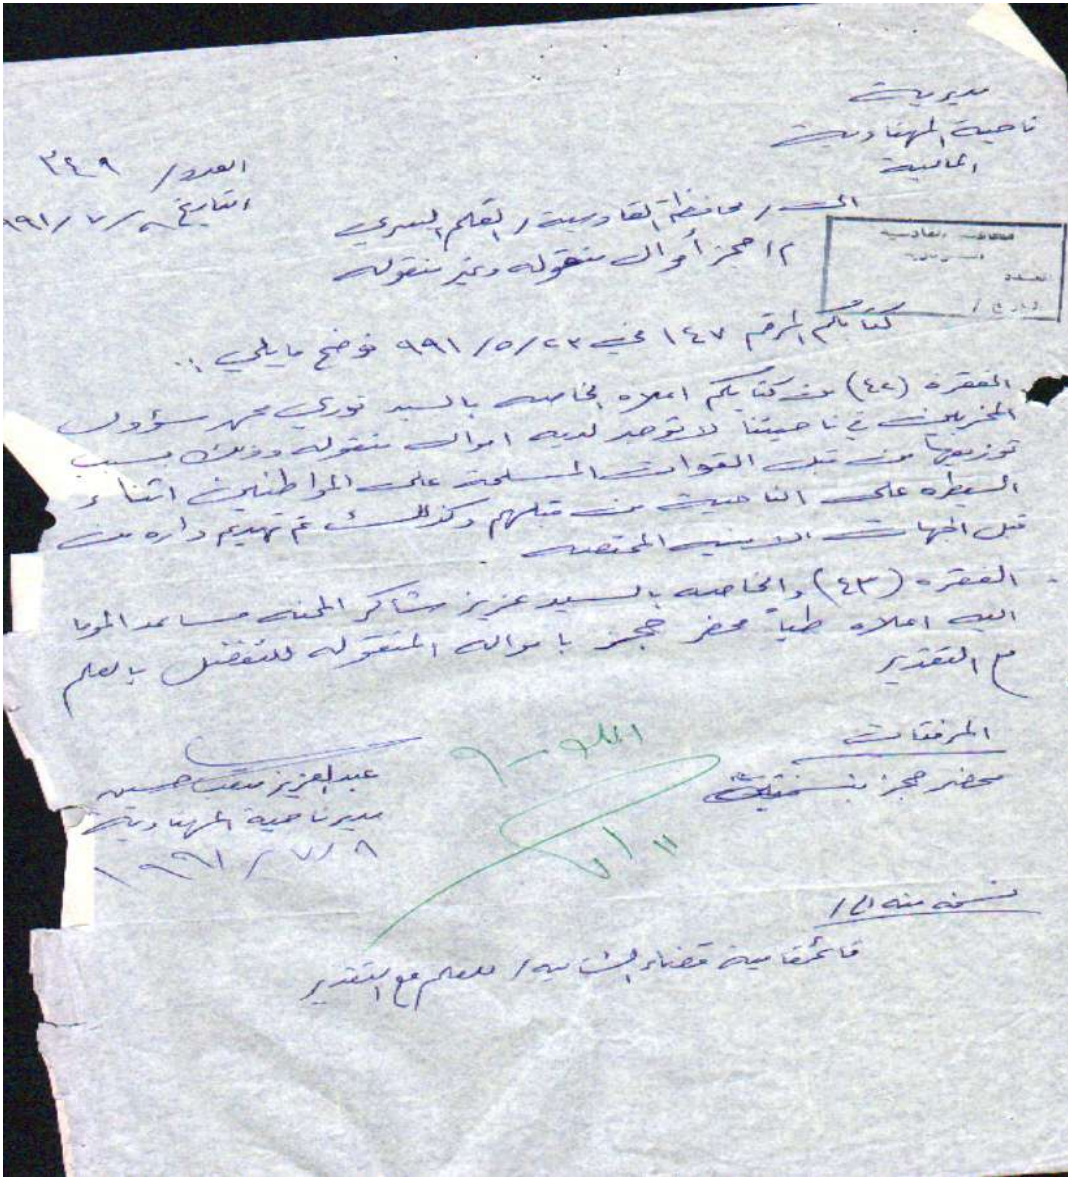 مديرية
ناحية المهناوية
المالية
العدد / ٣٤٩
التاريخ ٨ / ٧ / ٩٩١
الى / محافظة القادسية / القلم السري
م / حجز أموال منقوله وغير منقوله
محافظة القادسية
العدد
التاريخ /
كتابكم المرقم ١٤٧ في ٢٣ / ٥ / ٩٩١ نوضح مايلي ..
الفقره (٤٢) من كتابكم اعلاه الخاصه بالسيد نوري محمد مسؤول
المخربين في ناحيتنا لا توجد لديه اموال منقوله وذلك بسبب
توزيعها من قبل القوات المسلحة على المواطنين اثناء
السيطره على الناحية من قبلهم وكذلك تم تهديم داره من
قبل الجهات الامنيه المختصه .
الفقره (٤٣) والخاصه بالسيد عزيز شاكر المحنه مساعد الموما
اليه اعلاه طياً محضر حجز بامواله المنقوله للتفضل بالعلم
مع التقدير
المرفقات
محضر حجز بنسختين
عبدالعزيز حسين
مدير ناحية المهناوية
١٩٩١ / ٧ / ٨
١١ / ٧
نسخه منه الى /
قائمقامية قضاء الشاميه / للعلم مع التقدير